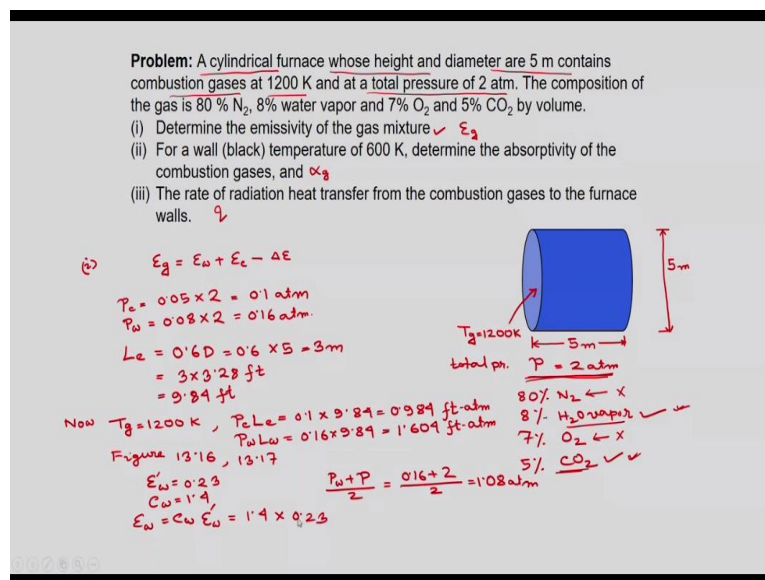 Problem: A cylindrical furnace whose height and diameter are 5 m contains
combustion gases at 1200 K and at a total pressure of 2 atm. The composition of
the gas is 80 % N₂, 8% water vapor and 7% O₂ and 5% CO₂ by volume.
(i) Determine the emissivity of the gas mixture ✓ εg
(ii) For a wall (black) temperature of 600 K, determine the absorptivity of the
combustion gases, and αg
(iii) The rate of radiation heat transfer from the combustion gases to the furnace
walls. q
(i) εg = εω + εc − Δε
Pc = 0.05 × 2 = 0.1 atm
Pω = 0.08 × 2 = 0.16 atm.
Le = 0.6D = 0.6 × 5 = 3m
= 3×3.28 ft
= 9.84 ft
Now Tg = 1200K, PcLe = 0.1 × 9.84 = 0.984 ft-atm
PωLω = 0.16×9.84 = 1.604 ft-atm
Figure 13.16, 13.17
ε'ω = 0.23
Cω = 1.4,
εω = Cω ε'ω = 1.4 × 0.23
(Pω + P)/2 = (0.16+2)/2 = 1.08 atm
5m
Tg=1200K
5m
total pr. P = 2 atm
80% N₂ ← ×
8% H₂O vapor ✓ ✓
7% O₂ ← ×
5% CO₂ ✓ ✓